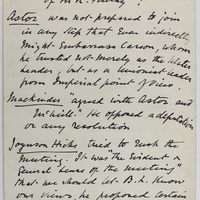 of Mr. R.
Astor was not prepared to join
in any step that even indirectly
might embarrass Carson, whom
he trusted not merely as the Ulster
leader, but as a Unionist leader
from Imperial point of view.
Mackinder "agreed with Astor and
McNeill." He opposed a deputation
or any resolution
Joynson Hicks tried to rush the
meeting. It was "the evident &
general sense of the meeting"
that we should let B.L. know
our views. He proposed certain